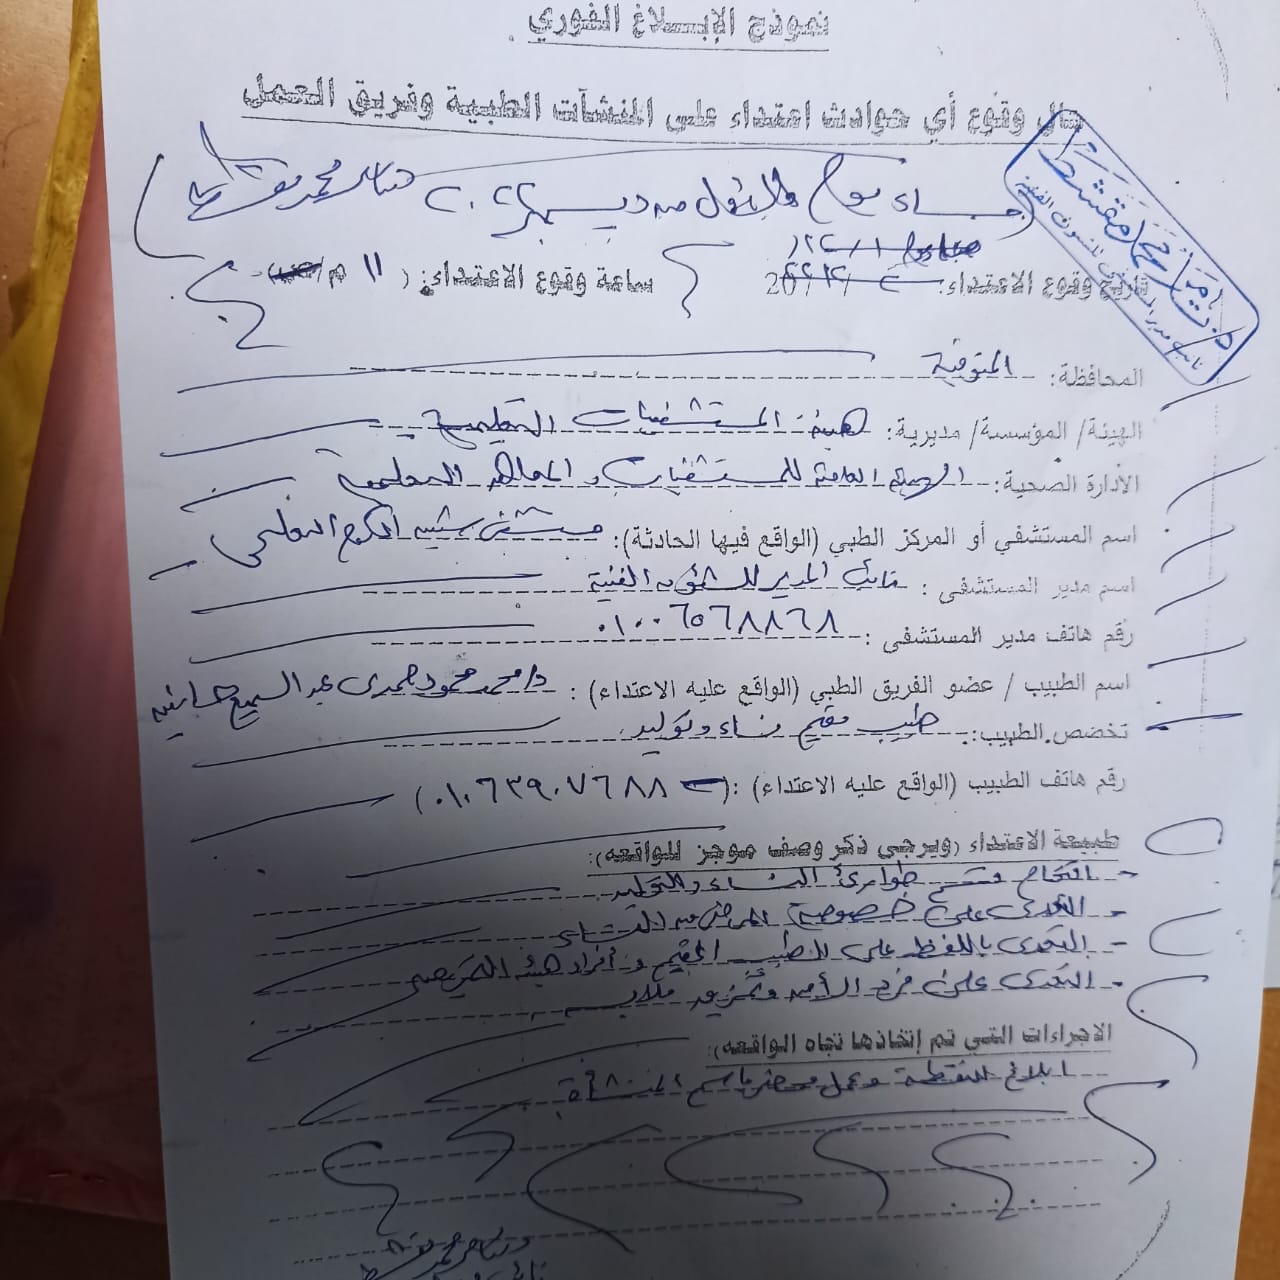 نموذج الإبلاغ الفوري
حال وقوع أي حوادث اعتداء على المنشآت الطبية وفريق العمل
مساء يوم الأول من ديسمبر ٢٠٢٢
تاريخ وقوع الاعتداء: ساعة وقوع الاعتداء: (١١ م/
المحافظة: المنوفية
الهيئة/ المؤسسة/ مديرية: هيئة المستشفيات التعليمية
الأدارة الصحية: الهيئة العامة للمستشفيات والمعاهد التعليمية
اسم المستشفي أو المركز الطبي (الواقع فيها الحادثة): مستشفى شبين الكوم التعليمي
اسم مدير المستشفى: نائب المدير للشئون الفنية
رقم هاتف مدير المستشفى: ٠١٠٠٦٥٦٨٨٦٨
اسم الطبيب / عضو الفريق الطبي (الواقع عليه الاعتداء): د/محمد محمود حمدى عبد السميع
تخصص الطبيب: طبيب مقيم نساء وتوليد
رقم هاتف الطبيب (الواقع عليه الاعتداء): (٠١٠٦٣٩٠٧٦٨٨)
طبيعة الاعتداء (ويرجى ذكر وصف موجز للواقعه):
- اقتحام قسم طوارئ النساء والتوليد
- التعدى على خصوصية المرضى من النساء
- التعدى باللفظ على الطبيب المقيم وأفراد هيئة التمريض
- التعدى على فرد الأمن وتمزيق ملابسه
الاجراءات التي تم إتخاذها تجاه الواقعه:
ابلاغ النقطة وعمل محضر باسم المنشأة